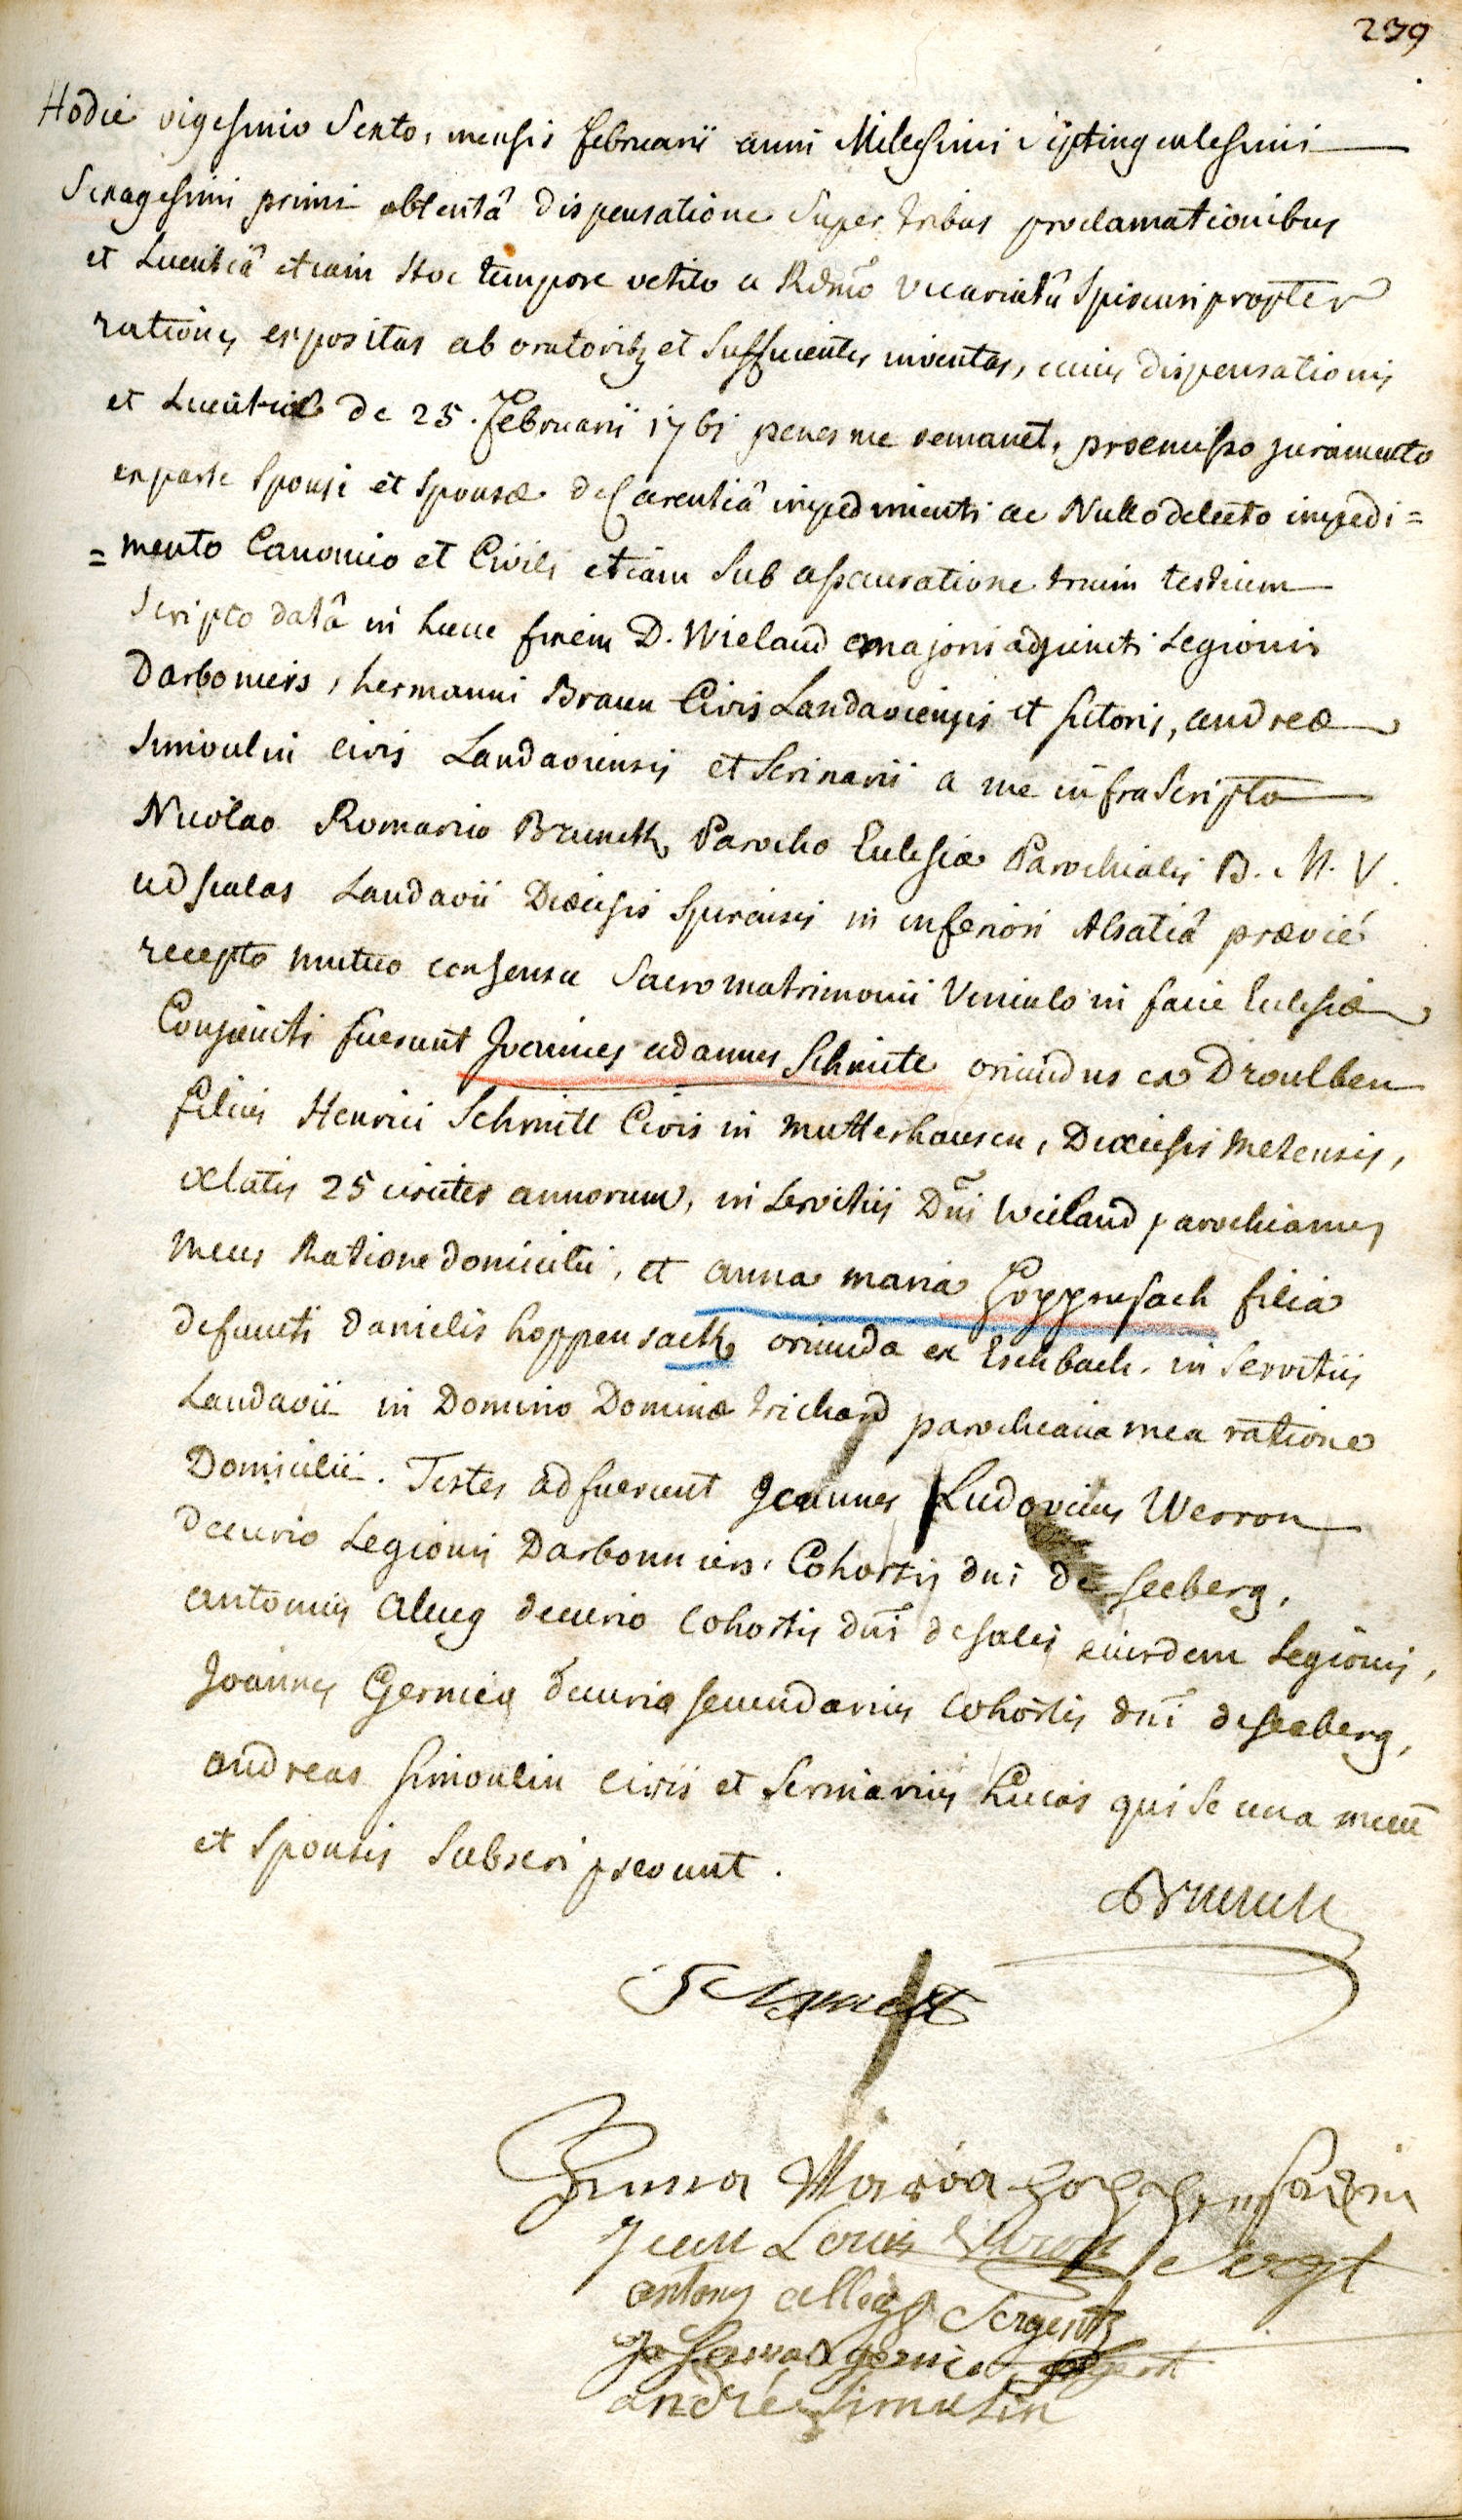 239
Hodie vigesimo Sexto, mensis februarii anni Milesimi Septingentesimi
Sexagesimi primi obtentâ dispensatione Super tribus proclamationibus
et Licentiâ etiam Hoc tempore vetito a Rdmo vicariatu Spirensi propter
rationes expositas ab oratoribus et Sufficientes inventas, cuius dispensationis
et Licentiae de 25. Februarii 1761 penes me remanet, proemisso juramento
ex parte Sponsi et Sponsae de Carentiâ impedimenti ac Nullo detecto impedi=
=mento Canonico et Civili etiam Sub assecuratione trium testium
Scripto datâ in hunc finem D. Wieland majoris adjuncti Legionis
Darboniers, hermanni Braun Civis Landaviensis et sutoris, andreae
Simoulin civis Landaviensis et Scrinarii a me infra Scripto
Nicolao Romarico Brunck Parocho Ecclesiae Parochialis B. M. V.
ad scalas Landavii Dioecesis Spirensis in inferiori Alsatiâ praevié
recepto mutuo consensu Sacro matrimonii Vinculo in facie Ecclesiae
Conjuncti fuerunt Joannes adamus Schmitt oriundus ex Droulben
filius Henrici Schmitt Civis in Mutterhausen, Dioecesis Metensis,
aetatis 25 circiter annorum, in Servitiis Dni Wieland parochianus
meus Ratione domicilii, et anna maria Hoppensach filia
defuncti danielis hoppensack oriunda ex Eschbach. in Servitiis
Landavii in Domino Dominae trichard parochiana mea ratione
Domicilii. Testes adfuerunt Joannes Ludovicus Werron
decurio Legionis Darbonniers, Cohortis dni de seeberg,
antonius aleeg decurio Cohortis dni de salis eiusdem Legionis,
Joannes Gernica decurio secundarius Cohortis dni de seeberg,
andreas simoulin civis et Scriniarius Lucas qui se una mecum
et Sponsis Subscripserunt.
Brunck
Schmitt
Anna Maria hoppensackin
Jean Louis Sergt
antony allegg Sergent
andré simulin